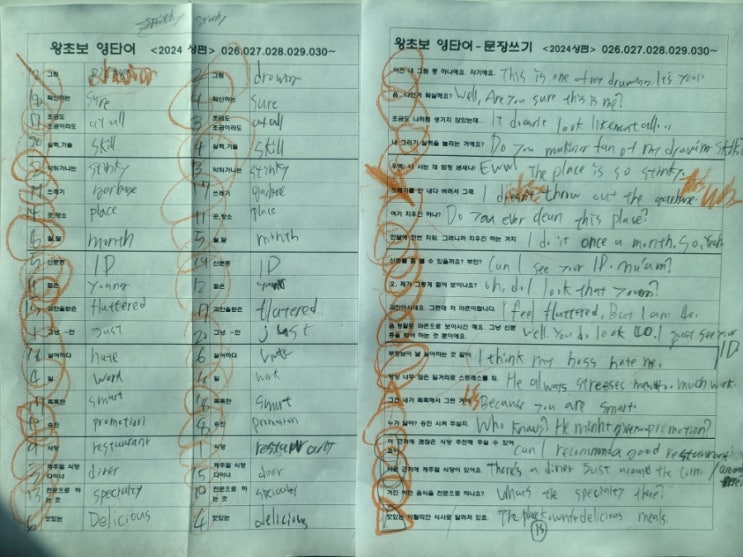 stinky stinky
왕초보 영단어 <2024 상편> 026.027.028.029.030~
그림 drawing 그림 drawing
확신하는 sure 4 확신하는 sure
조금도 조금이라도 at all 3 조금도 조금이라도 at all
실력,기술 skill 4 실력,기술 skill
악취가나는 stinky 악취가나는 stinky
쓰레기 garbage 쓰레기
곳,장소 place 곳,장소 place
월,달 month 5 월,달 month
신분증 ID 신분증 ID
젊은 young 젊은
과찬을받은 fluttered 과찬을받은 fluttered
그냥, ~만 Just 그냥, ~만 just
싫어하다 hate 6 싫어하다
일 work 일 work
똑똑한 smart 똑똑한 smart
승진 promotion 8 승진
식당 restaurant 1 식당 restaurant
캐주얼 식당 다이너 diner 15 캐주얼 식당 다이너 diner
전문으로 하는 것 specialty 10 전문으로 하는 것 specialty
맛있는 Delicious 4 맛있는 delicious
왕초보 영단어 - 문장쓰기 <2024상편> 026.027.028.029.030~
이건 내 그림 중 하나에요. 자기에요. This is one of my drawings. It's you!
음, 나인거 확실해요? Well, Are you sure this is me?
조금도 나처럼 생기지 않았는데... It doesn't look like me at all...
내 그리기 실력을 놀리는 거에요? Do you making fun of my drawing skills?
Eww! The place is so stinky.
쓰레기를 안 내다 버려서 그래. I didn't throw out the garbage.
여기 치우긴 하니? Do you ever clean this place?
한달에 한번 치워. 그러니까 치우긴 하는 거지 I do it once a month. So, Yeah.
신분증 좀 볼 수 있을까요? 부인? Can I see your ID. ma'am?
오, 제가 그렇게 젊어 보이나요? Oh, do I look that young?
과찬이시네요. 그런데 저 마흔이랍니다. I feel fluttered. But I am 40.
음 정말로 마흔으로 보이시긴 해요. 그냥 신분증을 봐야 하는 것 뿐이에요. Well you do look 40. I just see your ID
부장님이 날 싫어하는 것 같아. I think my boss hate me.
항상 너무 많은 일거리로 스트레스를 줘. He always streeses me much work.
그건 네가 똑똑해서 그런 거야. Because you are smart.
누가 알아? 승진 시켜 주실지. Who knows? He might give promotion?
이 근처에 괜찮은 식당 추천해 주실 수 있어요? Can I recommend a good restaurant around here?
바로 근처에 캐주얼 식당이 있어요. There's a diner Just around the corner
거긴 어떤 음식을 전문으로 하나요? What's the specialty there?
맛있는 이탈리안 식사로 알려져 있죠. The place known for delicious meals.